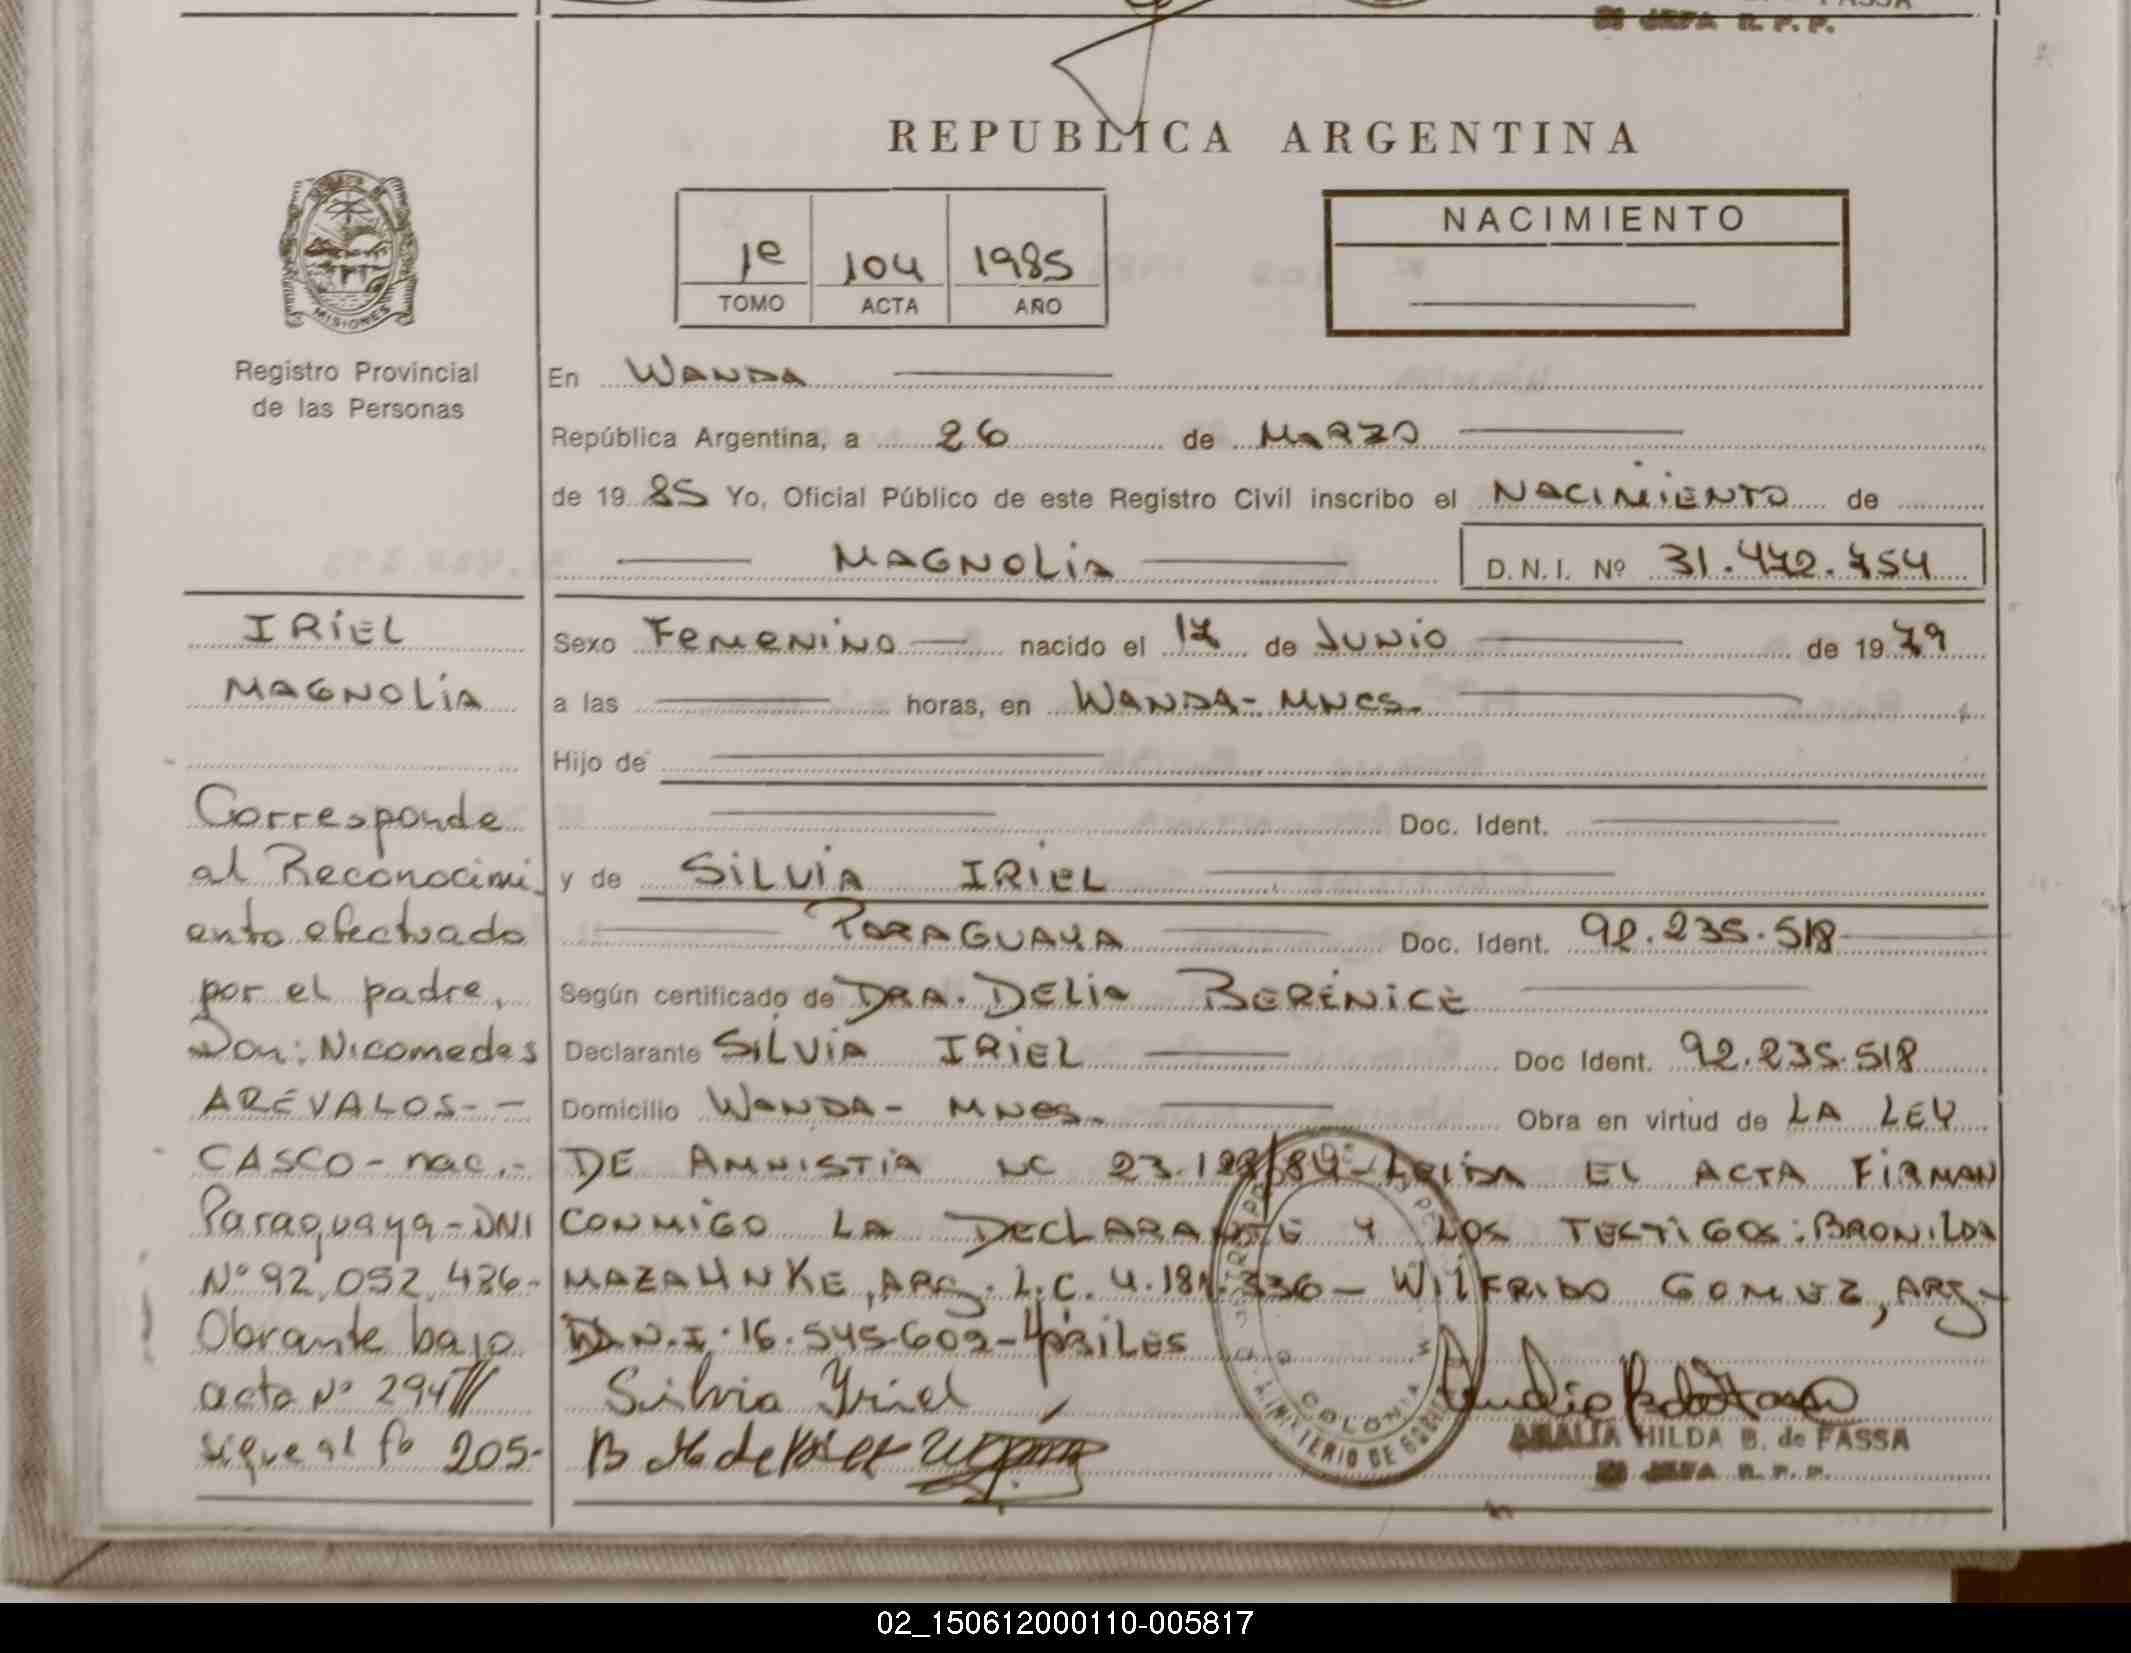 JEFA R. P. P.
REPUBLICA ARGENTINA
1e 104 1985
TOMO ACTA AÑO
NACIMIENTO
MISIONES
Registro Provincial
de las Personas
En WANDA
República Argentina, a 26 de MARZO
de 19 85 Yo, Oficial Público de este Registro Civil inscribo el NACIMIENTO de
MAGNOLIA D.N.I. Nº 31.472.754
Sexo FEMENINO nacido el 17 de JUNIO de 19 79
a las horas, en WANDA- MNES.
Hijo de
Doc. Ident.
y de SILVIA IRIEL
PARAGUAYA Doc. Ident. 92.235.518
Según certificado de DRA. DELIA BERENICE
Declarante SILVIA IRIEL Doc Ident. 92.235.518
Domicilio WANDA- MNES. Obra en virtud de LA LEY
DE AMNISTIA 84- LEIDA EL ACTA FIRMAN
CONMIGO LA DECLARANTE Y LOS TECTIGOS: BRONILDA
ARG. L.C. WILFRIDO GOMEZ, ARG-
D.N.I. 16.545.609-
Silvia Yriel
AMALIA HILDA B. de FASSA
JEFA R. P. P.
COLONIA
IRIEL
MAGNOLIA
Corresponde
al Reconocimi_
ento efectuado
por el padre,
Don: Nicomedes
AREVALOS- -
CASCO- nac.-
Paraguaya- DNI
Nº 92.052.436-
Obrante bajo
acta Nº 294
sigue al fo 205-
02_150612000110-005817